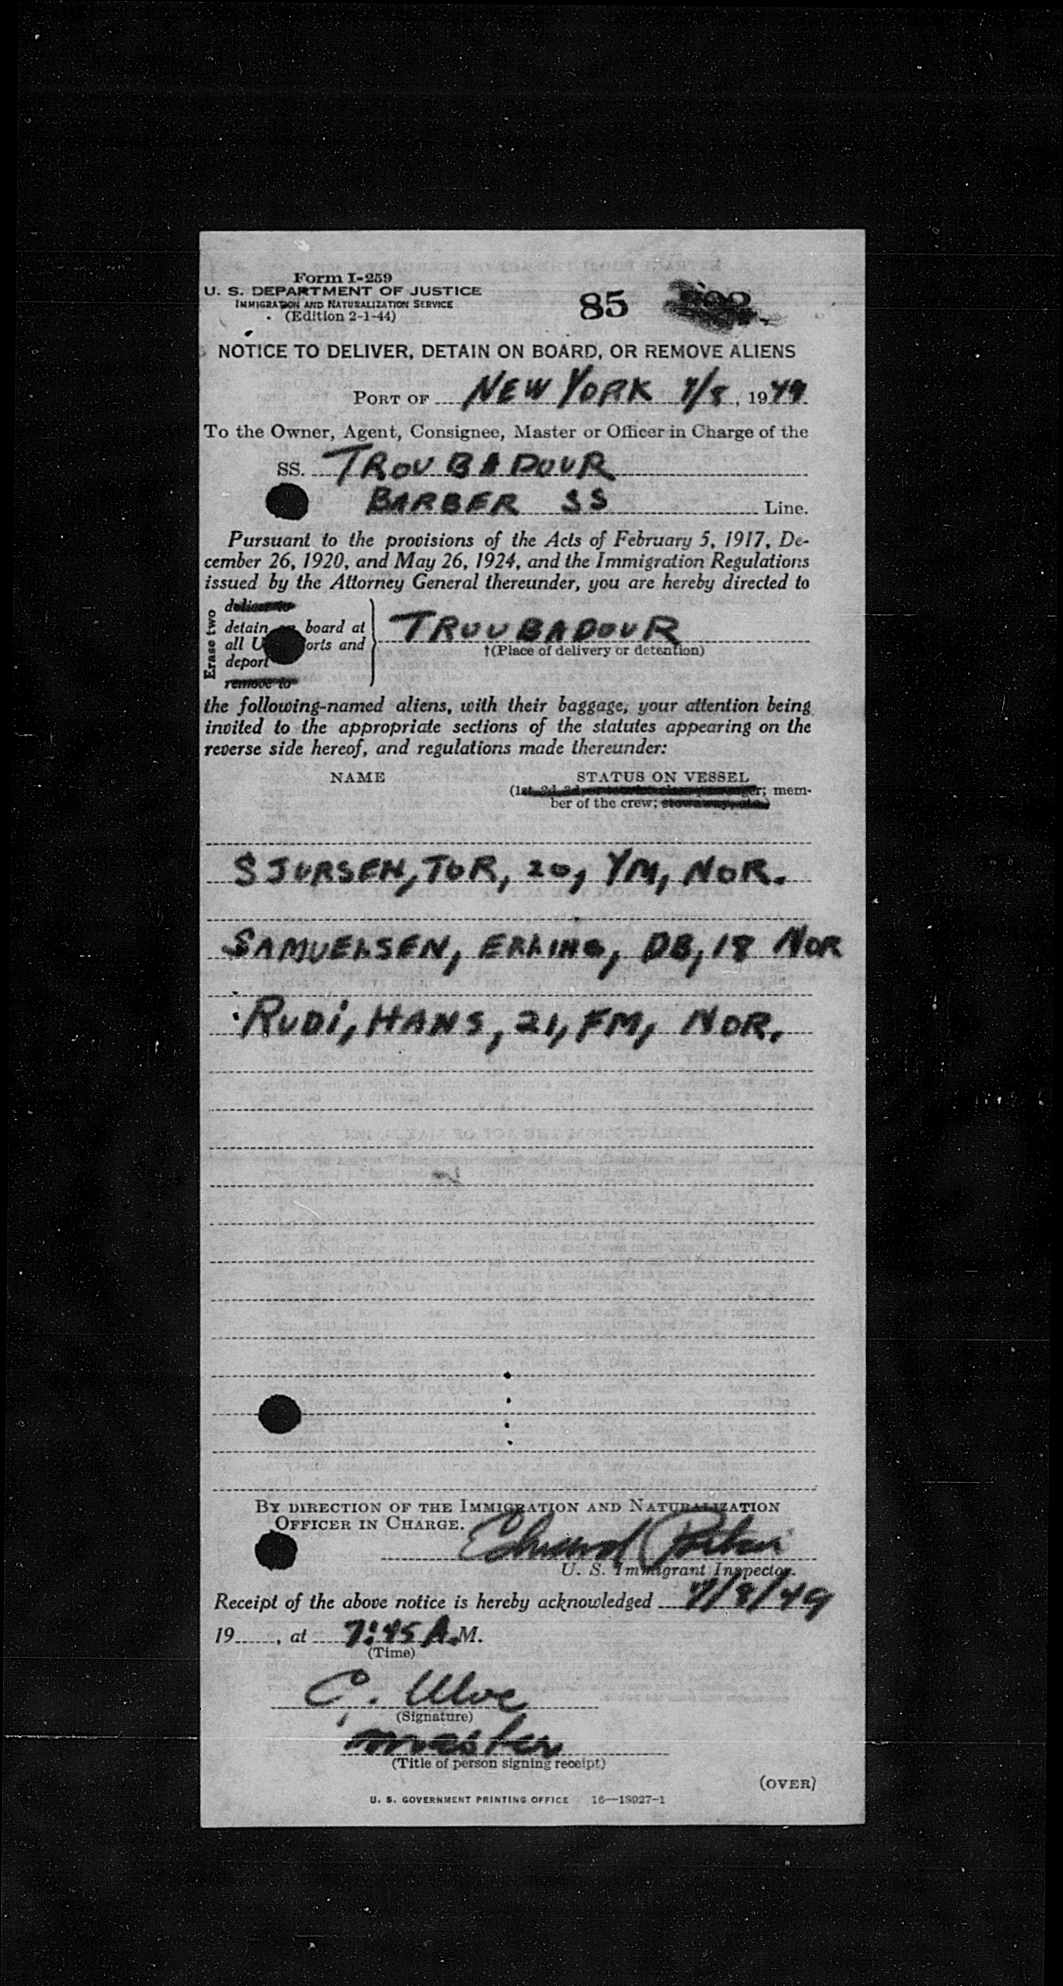 Form I-259
U. S. DEPARTMENT OF JUSTICE
IMMIGRATION AND NATURALIZATION SERVICE
(Edition 2-1-44)
85
NOTICE TO DELIVER, DETAIN ON BOARD, OR REMOVE ALIENS
PORT OF NEW YORK 7/8, 1949
To the Owner, Agent, Consignee, Master or Officer in Charge of the
SS. TROUBADOUR
BARBER SS Line.
Pursuant to the provisions of the Acts of February 5, 1917, De-
cember 26, 1920, and May 26, 1924, and the Immigration Regulations
issued by the Attorney General thereunder, you are hereby directed to
Erase two
deliver to
detain board at
all U orts and
deport
remove to
TROUBADOUR
†(Place of delivery or detention)
the following-named aliens, with their baggage, your attention being
invited to the appropriate sections of the statutes appearing on the
reverse side hereof, and regulations made thereunder:
NAME STATUS ON VESSEL
(1st, 2d, 3d, or tourist class passenger; mem-
ber of the crew; stowaway, etc.)
SJURSEN, TOR, 20, YM, NOR.
SAMUELSEN, ERLING, DB, 18 NOR
RUDI, HANS, 21, FM, NOR.
BY DIRECTION OF THE IMMIGRATION AND NATURALIZATION
OFFICER IN CHARGE.
Edward
U. S. Immigrant Inspector.
Receipt of the above notice is hereby acknowledged 7/8/49
19......, at 7:45 A.M.
(Time)
C.
(Signature)
master
(Title of person signing receipt)
(OVER)
U. S. GOVERNMENT PRINTING OFFICE 16—18027-1